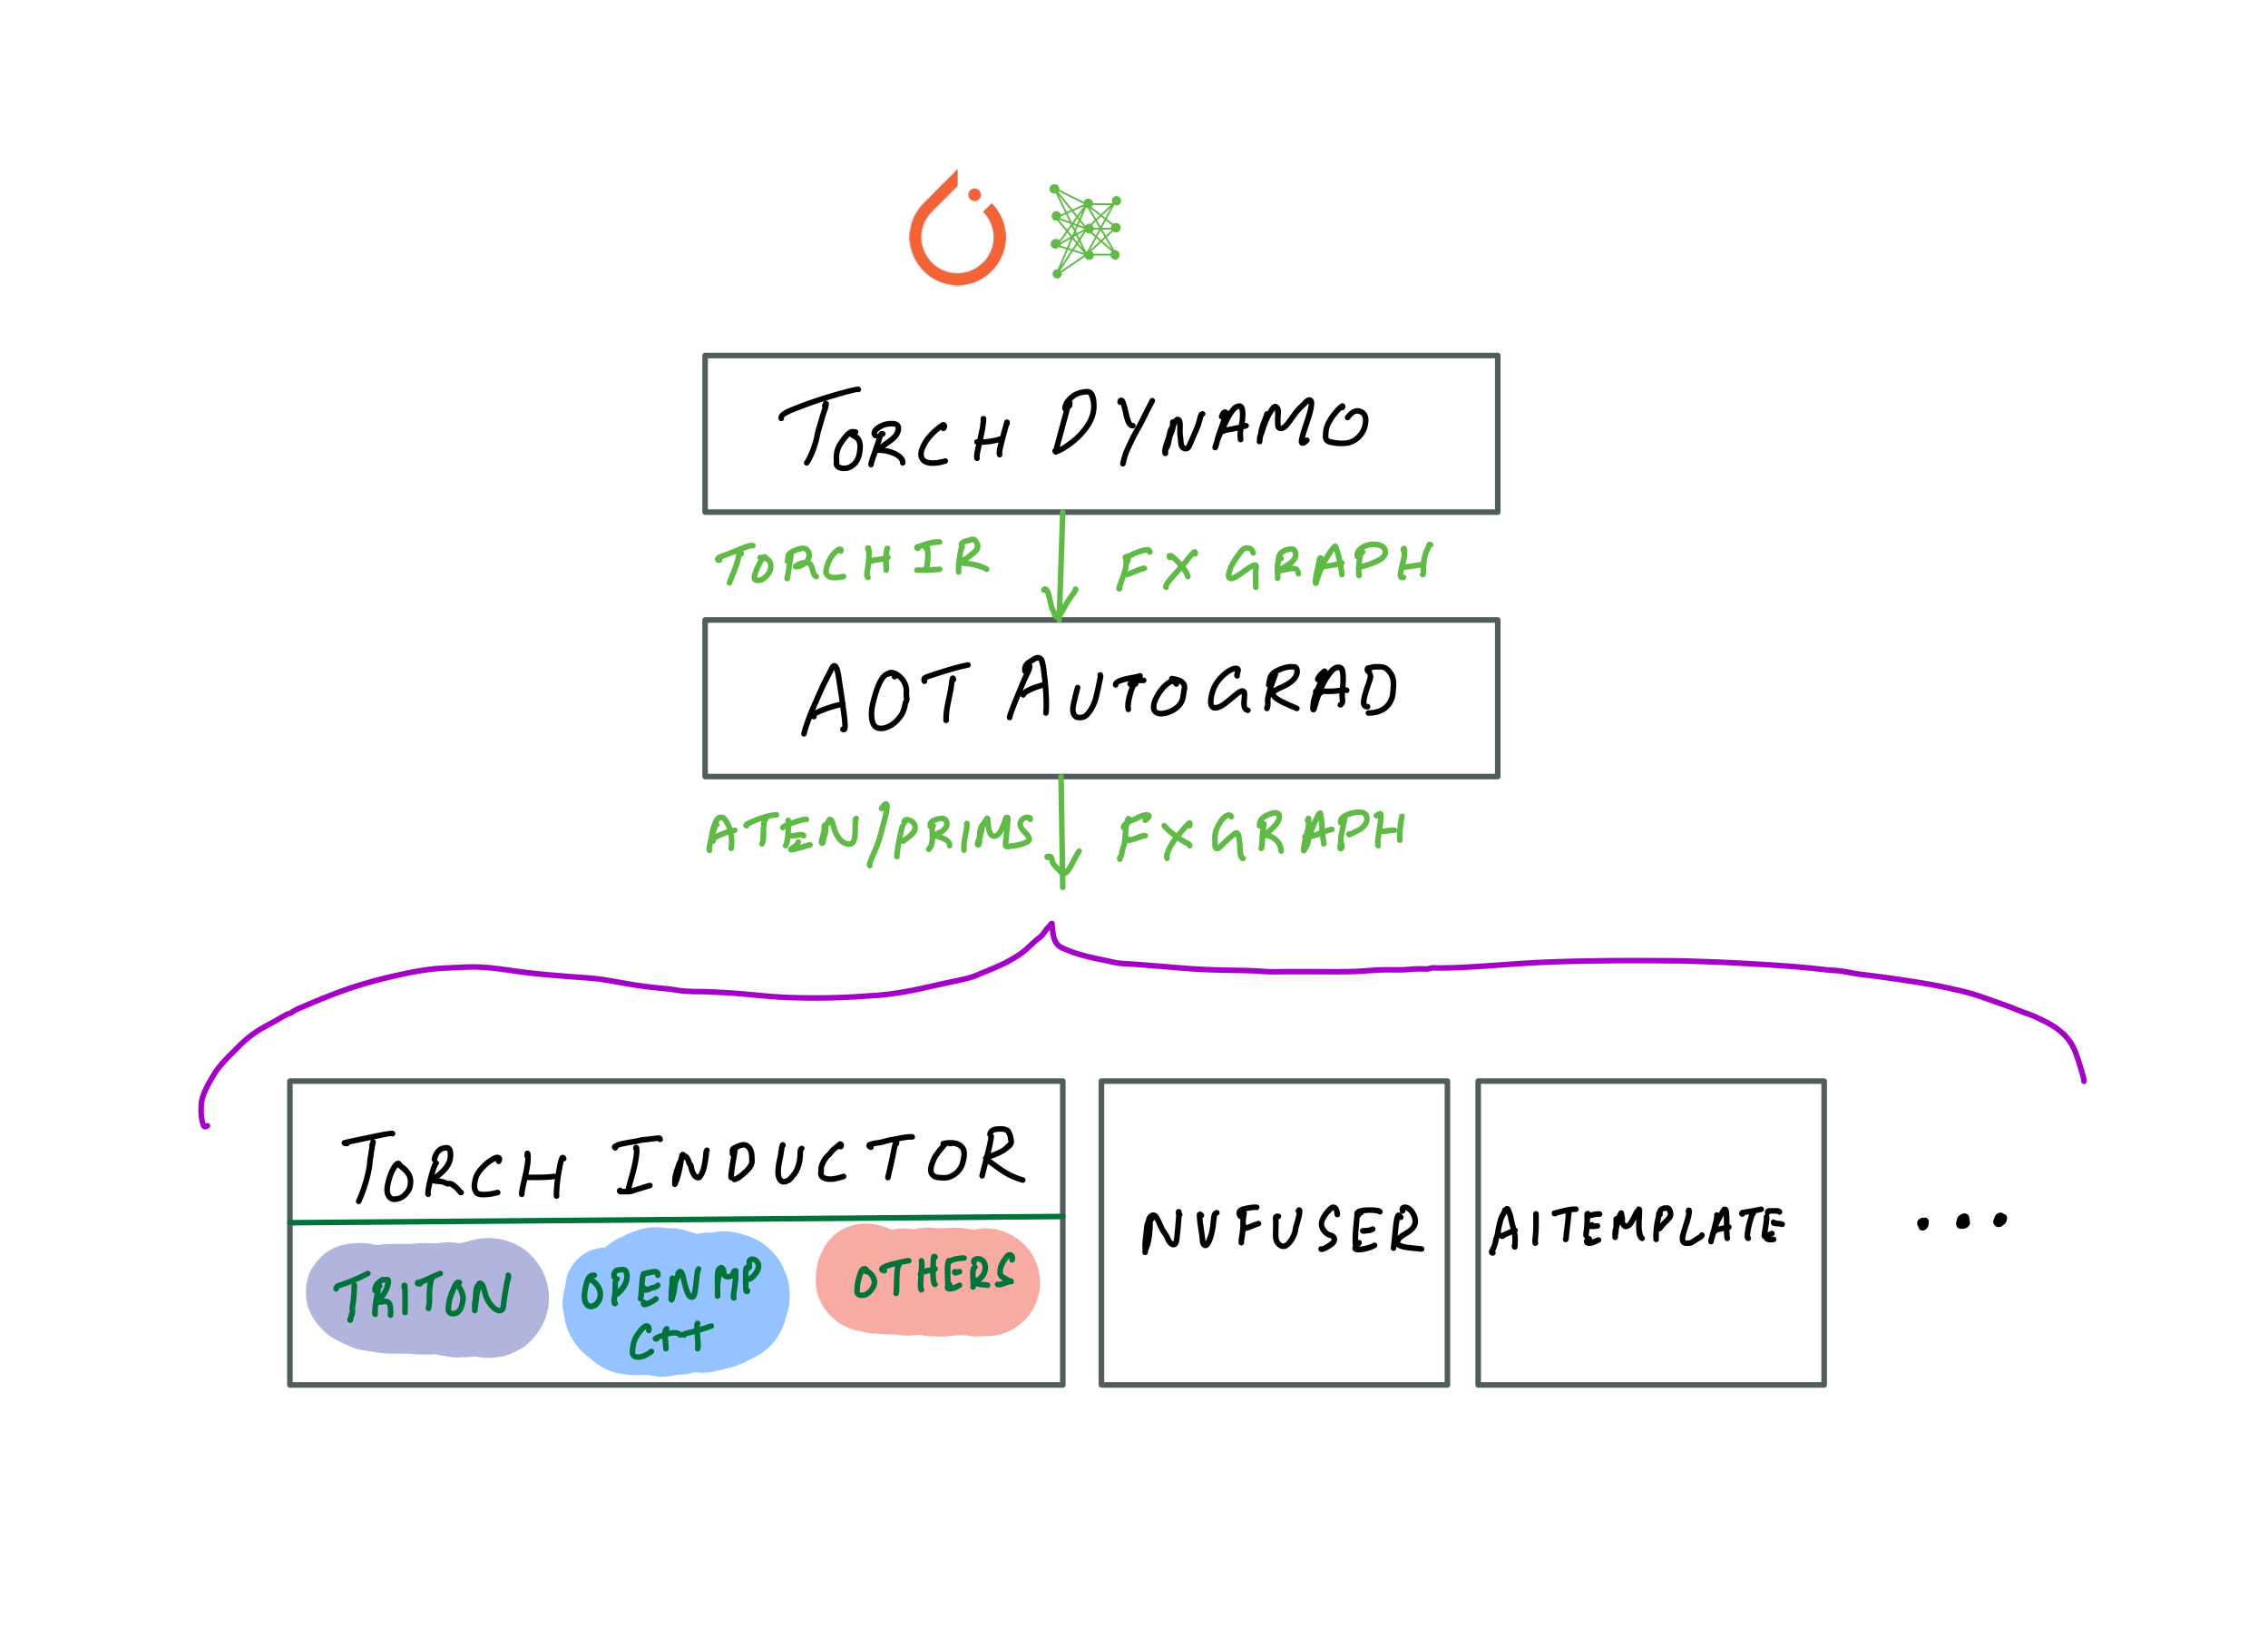 TORCH DYNAMO
TORCH IR FX GRAPH
AOT AUTOGRAD
ATEN/PRIMS FX GRAPH
TORCH INDUCTOR
TRITON
OPENMP
C++
OTHERS
NVFUSER
AITEMPLATE
...